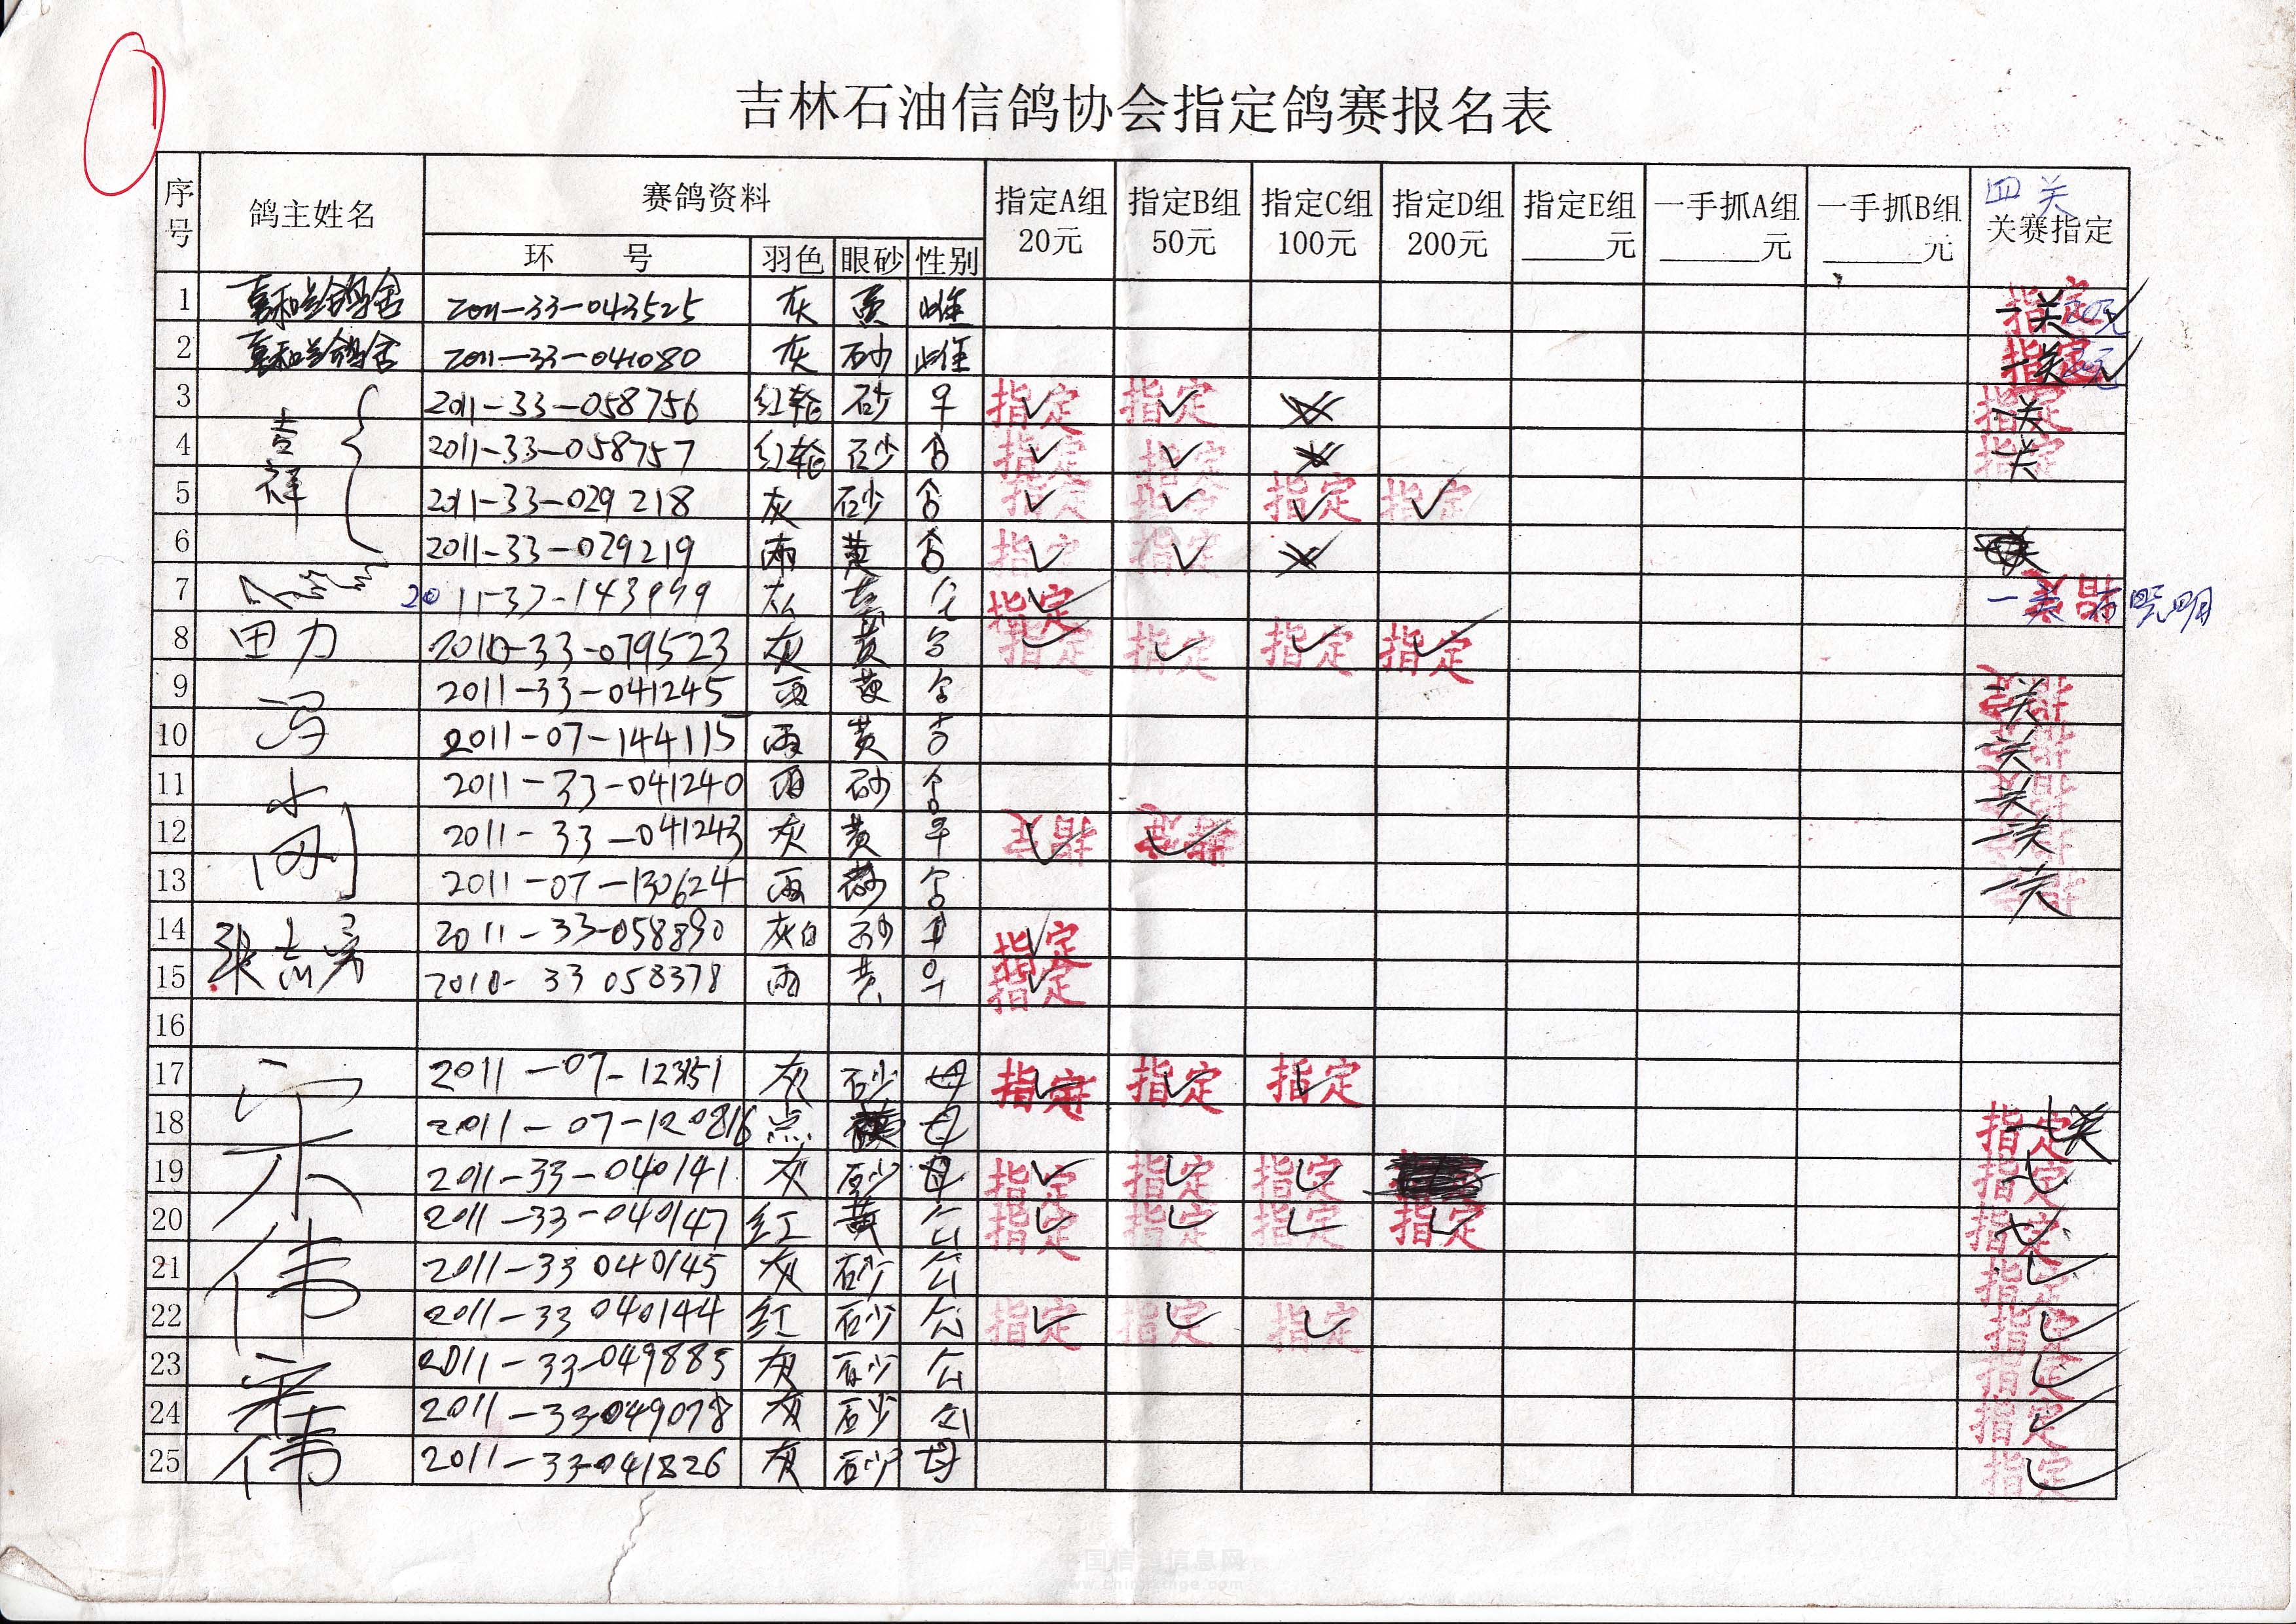 吉林石油信鸽协会指定鸽赛报名表
序号 鸽主姓名 赛鸽资料 指定A组 20元 指定B组 50元 指定C组 100元 指定D组 200元 指定E组 元 一手抓A组 元 一手抓B组 元 四关 关赛指定
环 号 羽色 眼砂 性别
1 2011-33-043525 灰 黄 雌 指定 一关
2 2011-33-041080 灰 砂 雌 指定 一关
3 吉祥 2011-33-058756 红轮 砂 指定 指定 指定 一关
4 2011-33-058757 红轮 砂 指定 指定 指定 一关
5 2011-33-029218 灰 砂 指定 指定 指定 指定
6 2011-33-029219 雨 黄 指定 指定
7 指定 一关
8 田力 2010-33-079523 灰 黄 指定 指定 指定 指定
9 冯 2011-33-041245 雨 黄 指定 一关
10 2011-07-144115 雨 黄 指定 一关
11 小刚 2011-33-041240 雨 砂 指定 一关
12 2011-33-041243 灰 黄 指定 指定 指定 一关
13 2011-07-130624 雨 指定 一关
14 2011-33-058890 灰白 砂 指定
15 2010-33 058378 雨 黄 指定
16
17 宋伟 2011-07- 灰 砂 母 指定 指定 指定
18 2011-07-120816 点 母 指定 关
19 2011-33-040141 灰 砂 母 指定 指定 指定 指定
20 2011-33-040147 红 黄 公 指定 指定 指定 指定 指定
21 2011-33 040145 灰 砂 公 指定
22 2011-33 040144 红 砂 公 指定 指定 指定 指定
23 宋伟 2011-33-049885 灰 砂 公 指定
24 2011-33-049078 灰 砂 公 指定
25 2011-33-041826 灰 砂 母 指定